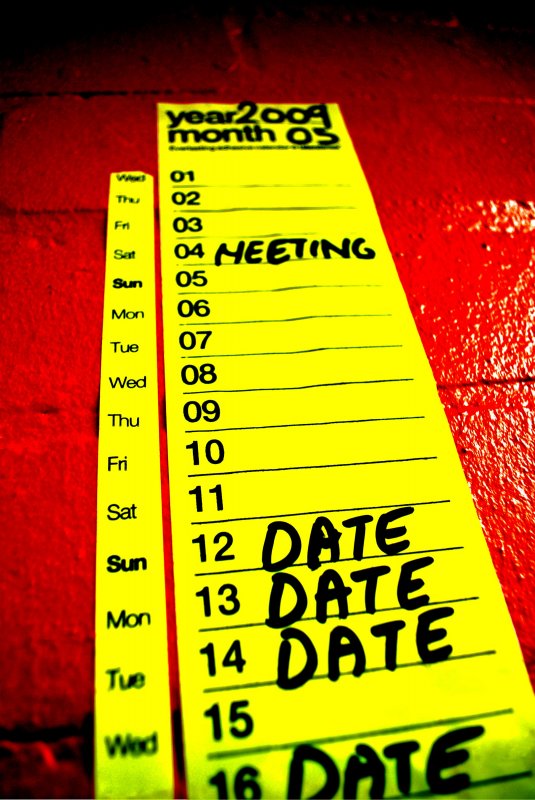 year 2009
month 05
Wed
Thu
Fri
Sat
Sun
Mon
Tue
Wed
Thu
Fri
Sat
Sun
Mon
Tue
Wed
01
02
03
04 MEETING
05
06
07
08
09
10
11
12 DATE
13 DATE
14 DATE
15
16 DATE